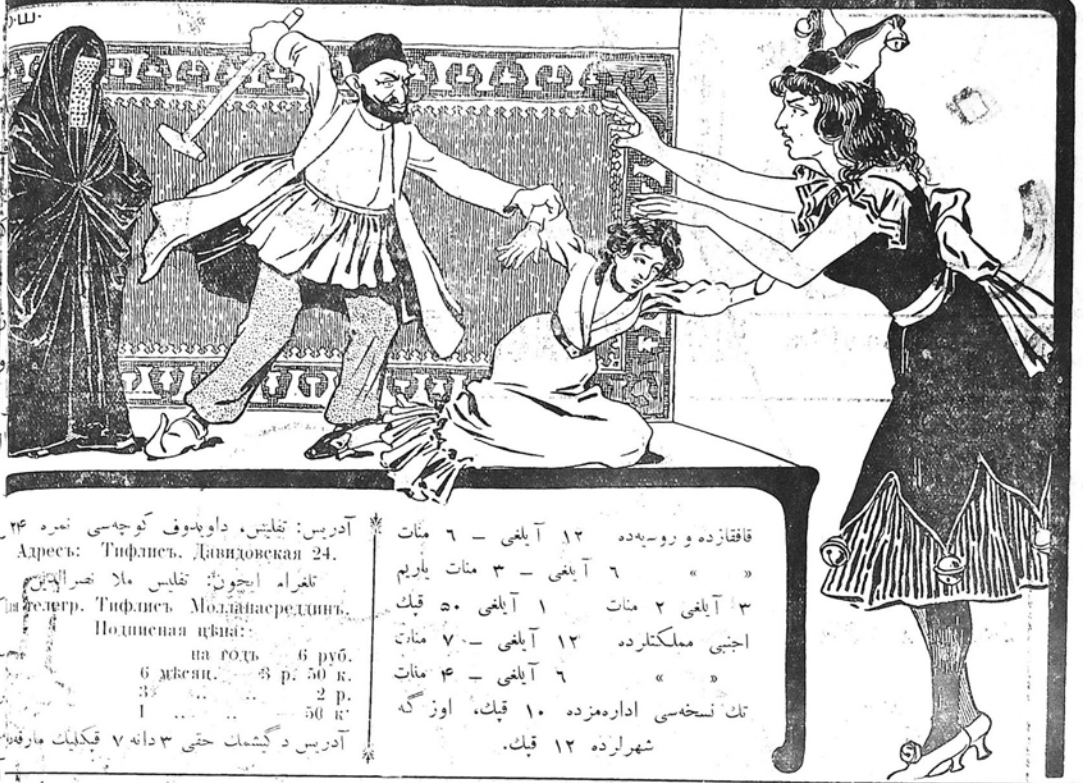 О·Ш·
آدریس: تفلیس، داویدوف کوچه‌سی نمره ۲۴
Адресъ: Тифлисъ. Давидовская 24.
تلغرام ایچون: تفلیس ملا نصرالدین
телегр. Тифлисъ Молланасреддинъ.
Подписная цѣна:
на годъ 6 руб.
6 мѣсяц. 3 р. 50 к.
3 „ „ 2 р.
1 „ „ 50 к.
آدریس دگیشمك حقی ۳ دانه ۷ قپکلیك مارقه
قافقازده و روسیه‌ده ۱۲ آیلغی – ۶ منات
» » ۶ آیلغی – ۳ منات یاریم
۳ آیلغی ۲ منات ۱ آیلغی ۵۰ قپك
اجنبی مملکتلرده ۱۲ آیلغی – ۷ منات
» » ۶ آیلغی – ۴ منات
تك نسخه‌سی اداره‌مزده ۱۰ قپك، اوز گه
شهرلرده ۱۲ قپك.